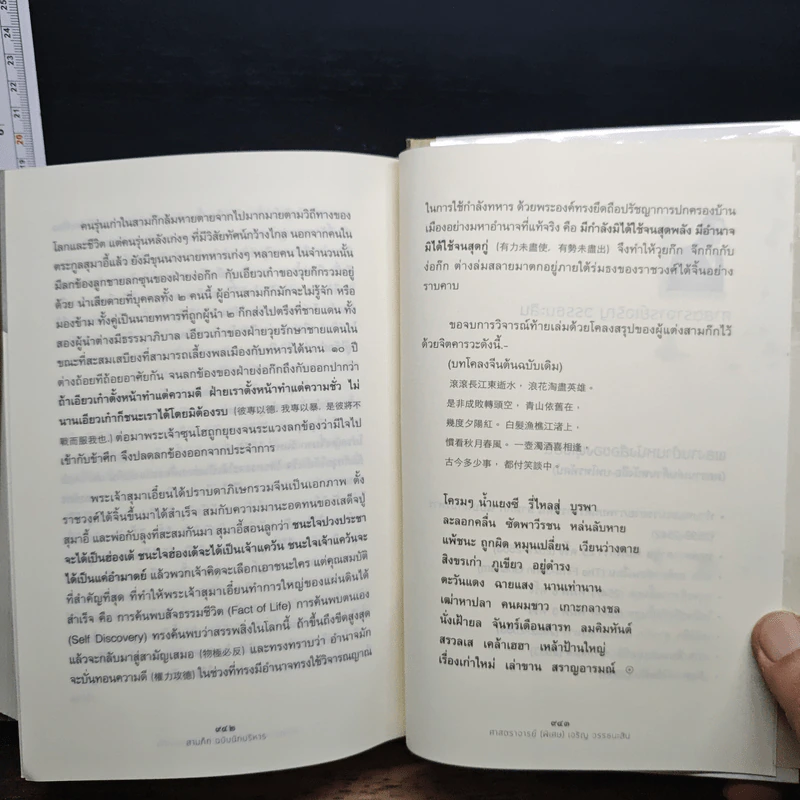 คนรุ่นเก่าในสามก๊กล้มหายตายจากไปมากมายตามวิถีทางของ
โลกและชีวิต แต่คนรุ่นหลังเก่งๆ ที่มีวิสัยทัศน์กว้างไกล นอกจากคนใน
ตระกูลสุมาอี้แล้ว ยังมีขุนนางนายทหารเก่งๆ หลายคน ในจำนวนนั้น
มีลกข้องลูกชายลกซุนของฝ่ายง่อก๊ก กับเอียวเก๋าของวุยก๊กรวมอยู่
ด้วย น่าเสียดายที่บุคคลทั้ง ๒ คนนี้ ผู้อ่านสามก๊กมักจะไม่รู้จัก หรือ
มองข้าม ทั้งคู่เป็นนายทหารที่ถูกผู้นำ ๒ ก๊กส่งไปตรึงที่ชายแดน ทั้ง
สองผู้นำต่างมีธรรมาภิบาล เอียวเก๋าของฝ่ายวุยรักษาชายแดนใน
ขณะที่สะสมเสบียงที่สามารถเลี้ยงพลเมืองกับทหารได้นาน ๑๐ ปี
ต่างถ้อยทีถ้อยอาศัยกัน จนลกข้องของฝ่ายง่อก๊กถึงกับออกปากว่า
ถ้าเอียวเก๋าตั้งหน้าทำแต่ความดี ฝ่ายเราตั้งหน้าทำแต่ความชั่ว ไม่
นานเอียวเก๋าก็ชนะเราได้โดยมิต้องรบ (彼專以德, 我專以暴, 是彼將不
戰而服我也.) ต่อมาพระเจ้าซุนโฮถูกยุยงจนระแวงลกข้องว่ามีใจไป
เข้ากับข้าศึก จึงปลดลกข้องออกจากประจำการ
พระเจ้าสุมาเอี๋ยนได้ปราบดาภิเษกรวมจีนเป็นเอกภาพ ตั้ง
ราชวงศ์ใต้จิ้นขึ้นมาได้สำเร็จ สมกับความมานะอดทนของเสด็จปู่
สุมาอี้ และพ่อกับลุงที่สะสมกันมา สุมาอี้สอนลูกว่า ชนะใจปวงประชา
จะได้เป็นฮ่องเต้ ชนะใจฮ่องเต้จะได้เป็นเจ้าแคว้น ชนะใจเจ้าแคว้นจะ
ได้เป็นแค่อำมาตย์ แล้วพวกเจ้าคิดจะเลือกเอาชนะใคร แต่คุณสมบัติ
ที่สำคัญที่สุด ที่ทำให้พระเจ้าสุมาเอี๋ยนทำการใหญ่ของแผ่นดินได้
สำเร็จ คือ การค้นพบสัจธรรมชีวิต (Fact of Life) การค้นพบตนเอง
(Self Discovery) ทรงค้นพบว่าสรรพสิ่งในโลกนี้ ถ้าขึ้นถึงขีดสูงสุด
แล้วจะกลับมาสู่สามัญเสมอ (物極必反) และทรงทราบว่า อำนาจมัก
จะบั่นทอนความดี (權力攻德) ในช่วงที่ทรงมีอำนาจทรงใช้วิจารณญาณ
๙๔๒
สามก๊ก ฉบับนักบริหาร
ในการใช้กำลังทหาร ด้วยพระองค์ทรงยึดถือปรัชญาการปกครองบ้าน
เมืองอย่างมหาอำนาจที่แท้จริง คือ มีกำลังมิได้ใช้จนสุดพลัง มีอำนาจ
มิได้ใช้จนสุดกู่ (有力未盡使, 有勢未盡出) จึงทำให้วุยก๊ก จ๊กก๊กกับ
ง่อก๊ก ต่างล่มสลายมาตกอยู่ภายใต้ร่มธงของราชวงศ์ใต้จิ้นอย่าง
ราบคาบ
ขอจบการวิจารณ์ท้ายเล่มด้วยโคลงสรุปของผู้แต่งสามก๊กไว้
ด้วยจิตคารวะดังนี้.-
(บทโคลงจีนต้นฉบับเดิม)
滾滾長江東逝水, 浪花淘盡英雄。
是非成敗轉頭空, 青山依舊在,
幾度夕陽紅。白髮漁樵江渚上,
慣看秋月春風。一壺濁酒喜相逢,
古今多少事, 都付笑談中。
โครมๆ น้ำแยงซี รี่ไหลสู่ บูรพา
ละลอกคลื่น ซัดพาวีรชน หล่นลับหาย
แพ้ชนะ ถูกผิด หมุนเปลี่ยน เวียนว่างตาย
สิงขรเก่า ภูเขียว อยู่ดำรง
ตะวันแดง ฉายแสง นานเท่านาน
เฒ่าหาปลา คนผมขาว เกาะกลางชล
นั่งเฝ้ายล จันทร์เดือนสารท ลมคิมหันต์
สรวลเส เคล้าเฮฮา เหล้าป้านใหญ่
เรื่องเก่าใหม่ เล่าขาน สราญอารมณ์
๙๔๓
ศาสตราจารย์ (พิเศษ) เจริญ วรรธนะสิน